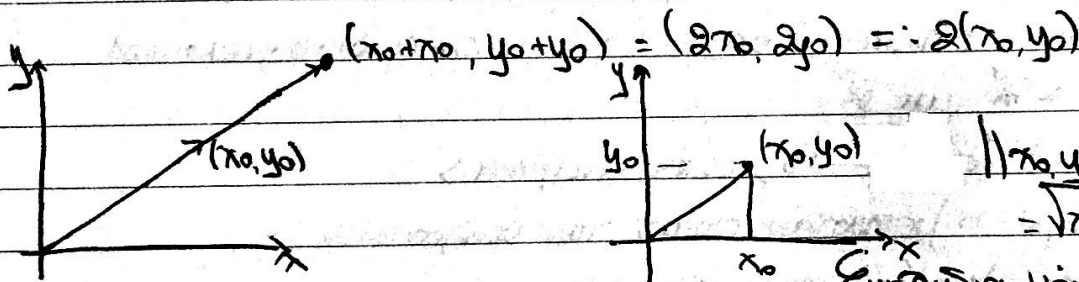 y (x₀+x₀, y₀+y₀) = (2x₀, 2y₀) =: 2(x₀, y₀)
y
(x₀, y₀) y₀ (x₀, y₀) ||x₀, y
= √
x x₀ x